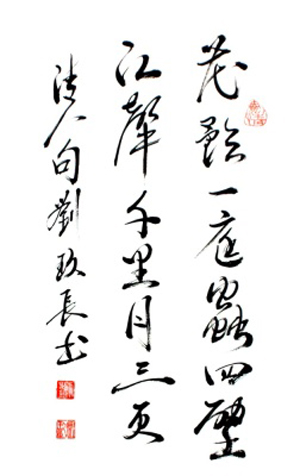 花影一庭蟲四壁
江聲千里月三更
清人句劉玖長書